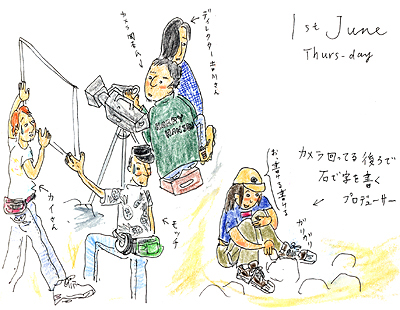 1st June
Thurs-day
ディレクター吉川さん
カメラ
カイさん
モッチ
お、書ける書ける
ガリガリ
カメラ回ってる後ろで
石で字を書く
プロデューサー